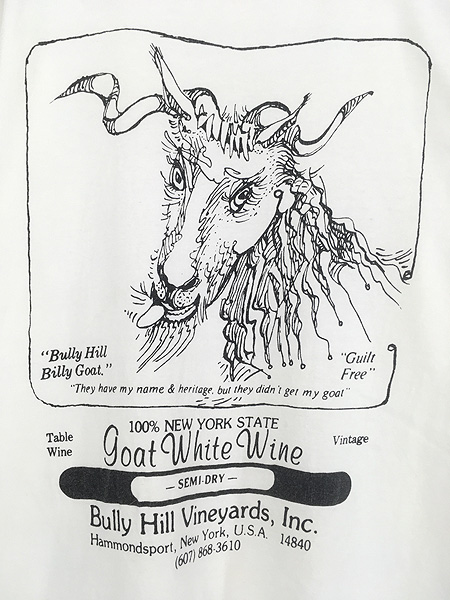 "Bully Hill
Billy Goat."
"Guilt
Free"
"They have my name & heritage, but they didn't get my goat"
100% NEW YORK STATE
Table
Wine
Goat White Wine
Vintage
— SEMI-DRY —
Bully Hill Vineyards, Inc.
Hammondsport, New York, U.S.A. 14840
(607) 868-3610